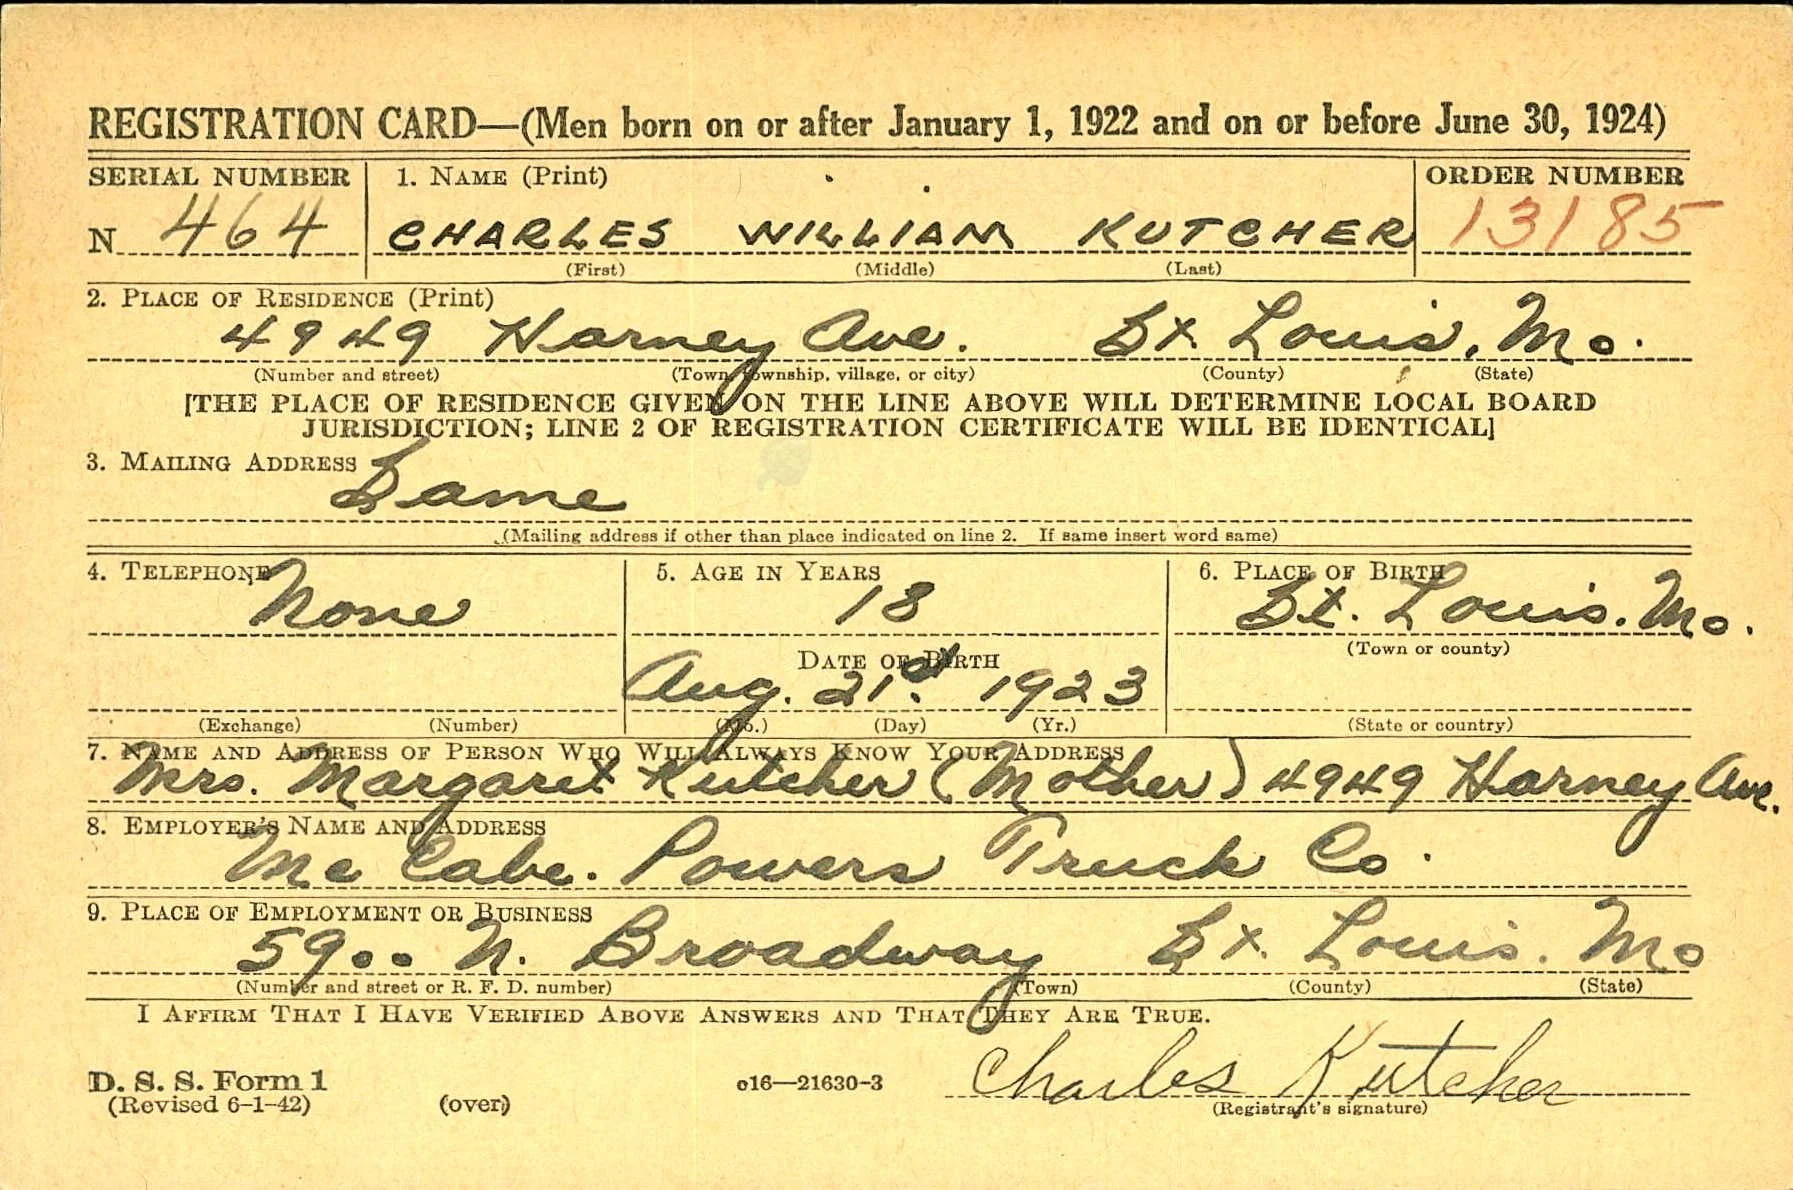 REGISTRATION CARD—(Men born on or after January 1, 1922 and on or before June 30, 1924)
SERIAL NUMBER 1. NAME (Print) ORDER NUMBER
N 464 CHARLES WILLIAM KUTCHER 13185
(First) (Middle) (Last)
2. PLACE OF RESIDENCE (Print)
4949 Harney Ave. St. Louis, Mo.
(Number and street) (Town, township, village, or city) (County) (State)
[THE PLACE OF RESIDENCE GIVEN ON THE LINE ABOVE WILL DETERMINE LOCAL BOARD
JURISDICTION; LINE 2 OF REGISTRATION CERTIFICATE WILL BE IDENTICAL]
3. MAILING ADDRESS
Same
(Mailing address if other than place indicated on line 2. If same insert word same)
4. TELEPHONE 5. AGE IN YEARS 6. PLACE OF BIRTH
None 18 St. Louis. Mo.
DATE OF BIRTH (Town or county)
Aug. 21st. 1923
(Exchange) (Number) (Mo.) (Day) (Yr.) (State or country)
7. NAME AND ADDRESS OF PERSON WHO WILL ALWAYS KNOW YOUR ADDRESS
Mrs. Margaret Kutcher (Mother) 4949 Harney Ave.
8. EMPLOYER'S NAME AND ADDRESS
Mc Cabe. Powers Truck Co.
9. PLACE OF EMPLOYMENT OR BUSINESS
5900 N. Broadway St. Louis. Mo
(Number and street or R. F. D. number) (Town) (County) (State)
I AFFIRM THAT I HAVE VERIFIED ABOVE ANSWERS AND THAT THEY ARE TRUE.
D. S. S. Form 1 c16—21630-3 Charles Kutcher
(Revised 6-1-42) (over) (Registrant's signature)